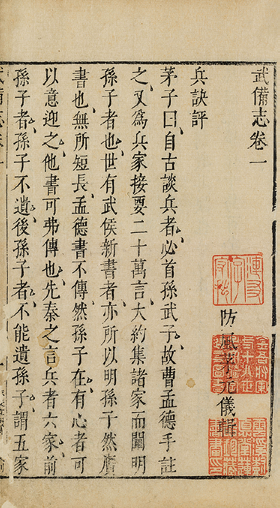 武備志卷一
防風茅元儀輯
兵訣評
茅子曰自古談兵者必首孫武子故曹孟德手註
之又爲兵家接要二十萬言大約集諸家而闡明
孫子者也世有武侯新書者亦所以明孫子然贗
書也無所短長孟德書不傳然孫子在有心者可
以意迎之他書可弗傳也先秦之言兵者六家前
孫子者孫子不遺後孫子者不能遺孫子謂五家